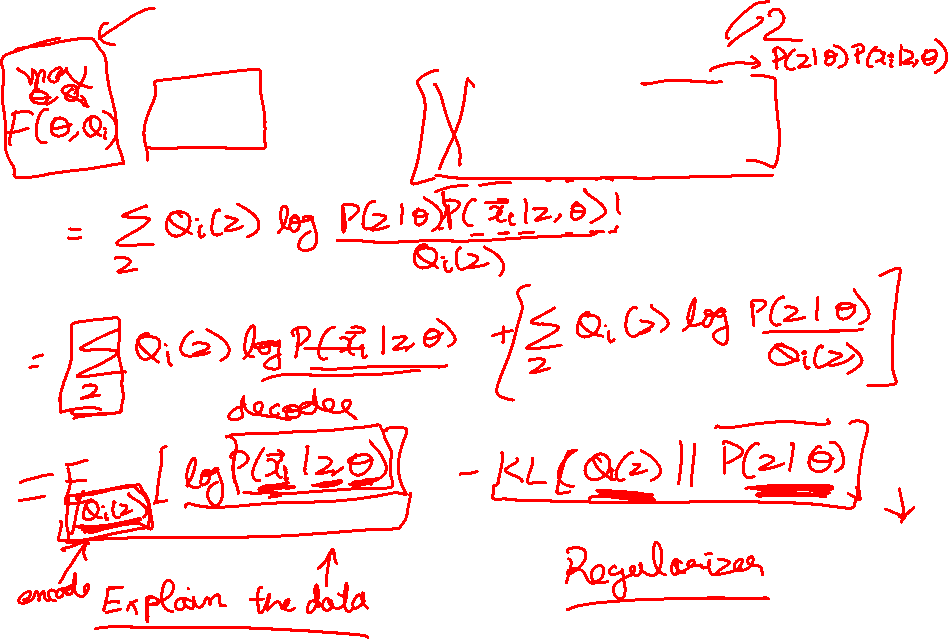 max
θ, Qi
F(θ, Qi)
→ P(z|θ) P(xi|z, θ)
= Σz Qi(z) log P(z|θ) P(x⃗i|z, θ) / Qi(z)
= Σz Qi(z) log P(x⃗i|z, θ) + [Σz Qi(z) log P(z|θ) / Qi(z)]
decoder
= E Qi(z) [log P(x⃗i|z, θ)] - KL(Qi(z) || P(z|θ)) ↓
encode
Explain the data
Regularizer